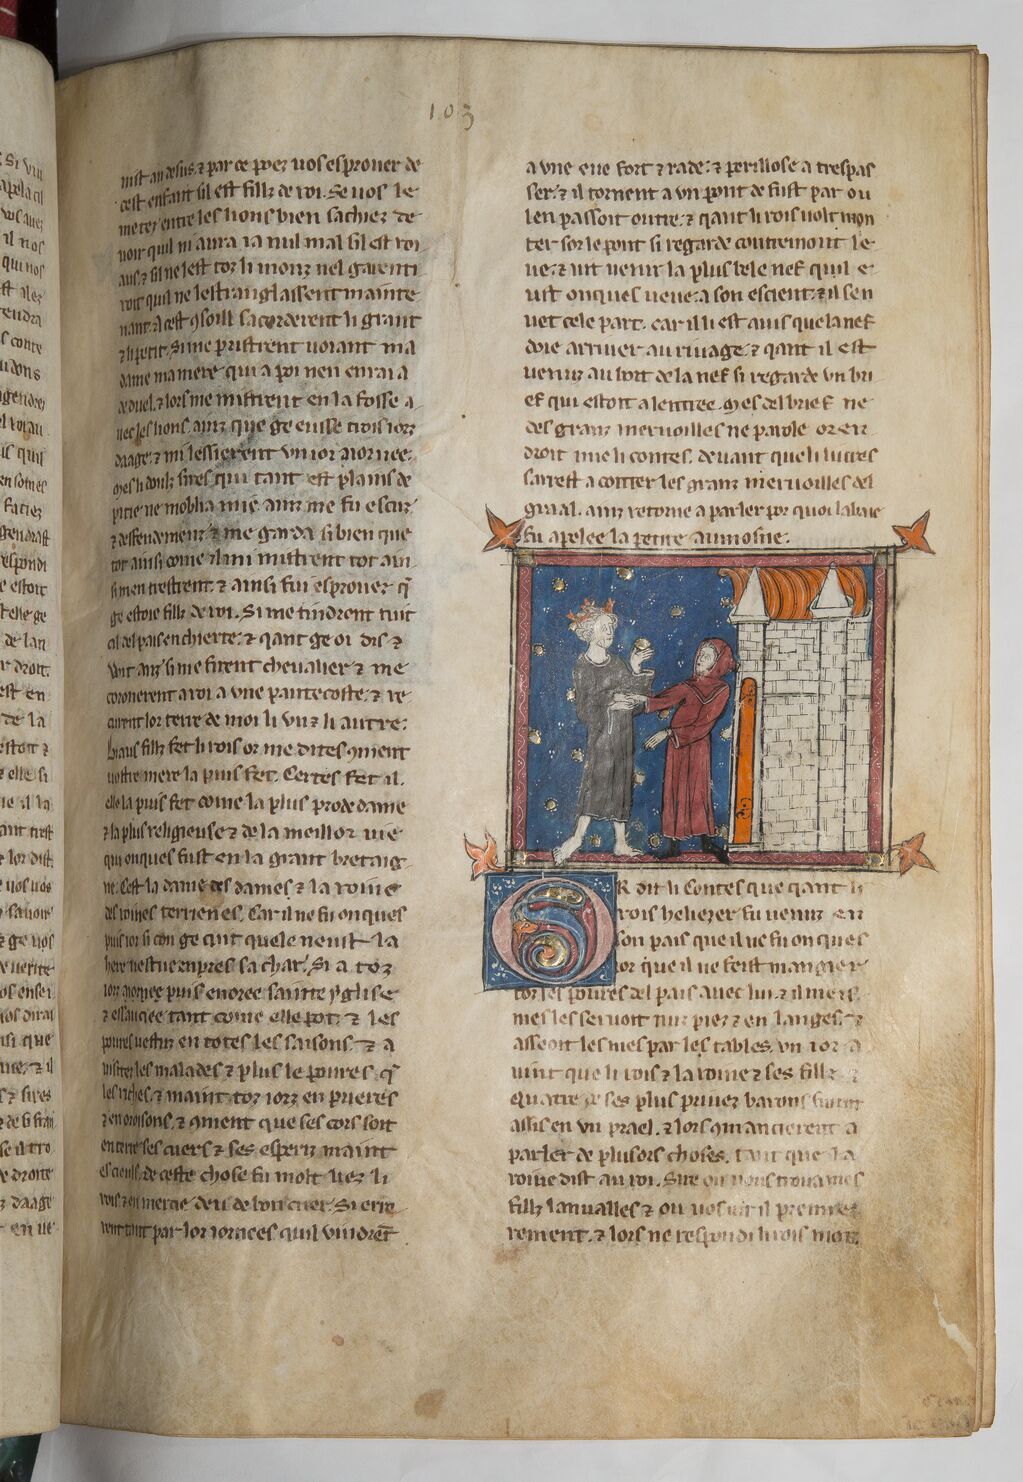 103
mist au desus. ⁊ par ce poez uos esprouer de
cest enfant sil est filz de roi. Se uos le
metez entre les lions bien sachiez de
uoir quil ni aura ia nul mal sil est roi
aus. ⁊ sil ne lest toz li monz nel garenti
roit quil ne lestranglassent mainte
nant. A cest 9soill sacorderent li grant
⁊ li petit. Si me pristrent uoiant ma
dame ma mere qui a poi nen enraia
de duel. ⁊ lors me mistrent en la fosse a
uec les lions. ainz que ge eusse trois iorz
daage. ⁊ mi lessierent un ior a iornee.
mes li douz sires qui tant est plains de
pitie ne moblia mie ainz me fu escuz
⁊ deffendement ⁊ me garda si bien que
tot ainsi come il mi mistrent tot ain
si men trestrent. ⁊ ainsi fui esprouez q̄
ge estoie filz de roi. Si me tindrent tuit
cil del pais en chierte. ⁊ qant ge oi dis ⁊
uit anz si me firent cheualier ⁊ me
coronerent a roi a une pantecoste. ⁊ re
curent lor terre de moi li un ⁊ li autre.
biaus filz fet li rois or me dites 9ment
uostre mere la puis fet. Certes fet il.
elle la puis fet come la plus prode dame
⁊ la plus religieuse ⁊ de la meillor uie
qui onques fust en la grant bretaig
ne. Cest la dame des dames ⁊ la roine
des roines terrienes. Car il ne fu onques
puis ior si con ge cuit quele neust la
here uestue enpres sa char. Si a toz
iorz puis enoree sainte yglise
⁊ essauciee tant come elle pot. ⁊ les
poures uestuz en totes les saisons. ⁊ a
uisitez les malades ⁊ plus le poures q̄
les riches. ⁊ maint toz iorz en prieres
⁊ en oroisons. ⁊ 9ment que ses cors soit
en terre ses cuers ⁊ ses esperiz maint
es cieuls. de ceste chose fu molt liez li
rois ⁊ en mercie deu de bon cuer. Si erre
rent tant par lor iornees quil uindrēt
a une eue fort ⁊ rade. ⁊ perillose a trespas
ser. ⁊ il tornent a un pont de fust par ou
len passoit outre. ⁊ qant li rois uolt mon
ter sor le pont si regarde contremont le
ue. ⁊ uit uenir la plus bele nef quil e
ust onques ueue a son escient. ⁊ il sen
uet cele part. car il li est auis que la nef
doie arriuer au riuage. ⁊ qant il est
uenuz au bort de la nef si regarde un bri
ef qui estoit a lentree. Mes del brief ne
des granz meruoilles ne parole or en
droit mie li contes. deuant que li liures
sarrest a conter les granz meruoilles del
graal. ainz retorne a parler por quoi labaie
fu apelee la petite aumosne.
OR dit li Contes que qant li
rois helyezer fu uenuz en
son pais que il ne fu onques
ior que il ne feist mangier
toz les poures del pais auec lui. ⁊ il meis
mes les seruoit nuz piez ⁊ en langes. ⁊
asseoit les mes par les tables. un ior a
uint que li rois ⁊ la roine ⁊ ses filz ⁊
quatre de ses plus priuez barons furent
assis en un prael. ⁊ lors 9mancierent a
parler de plusors choses. tant que la
roine dist au roi. Sire ou nous trouames
filz lanualles ⁊ ou premie
rement. ⁊ lors ne respondi li rois mot